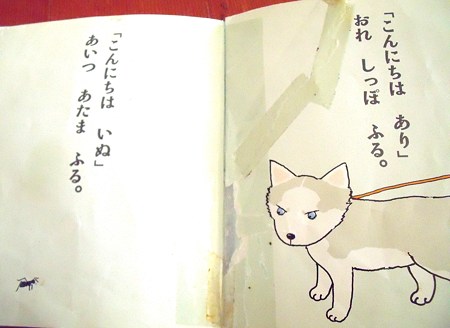 「こんにちは　あり」
おれ　しっぽ　ふる。
「こんにちは　いぬ」
あいつ　あたま　ふる。